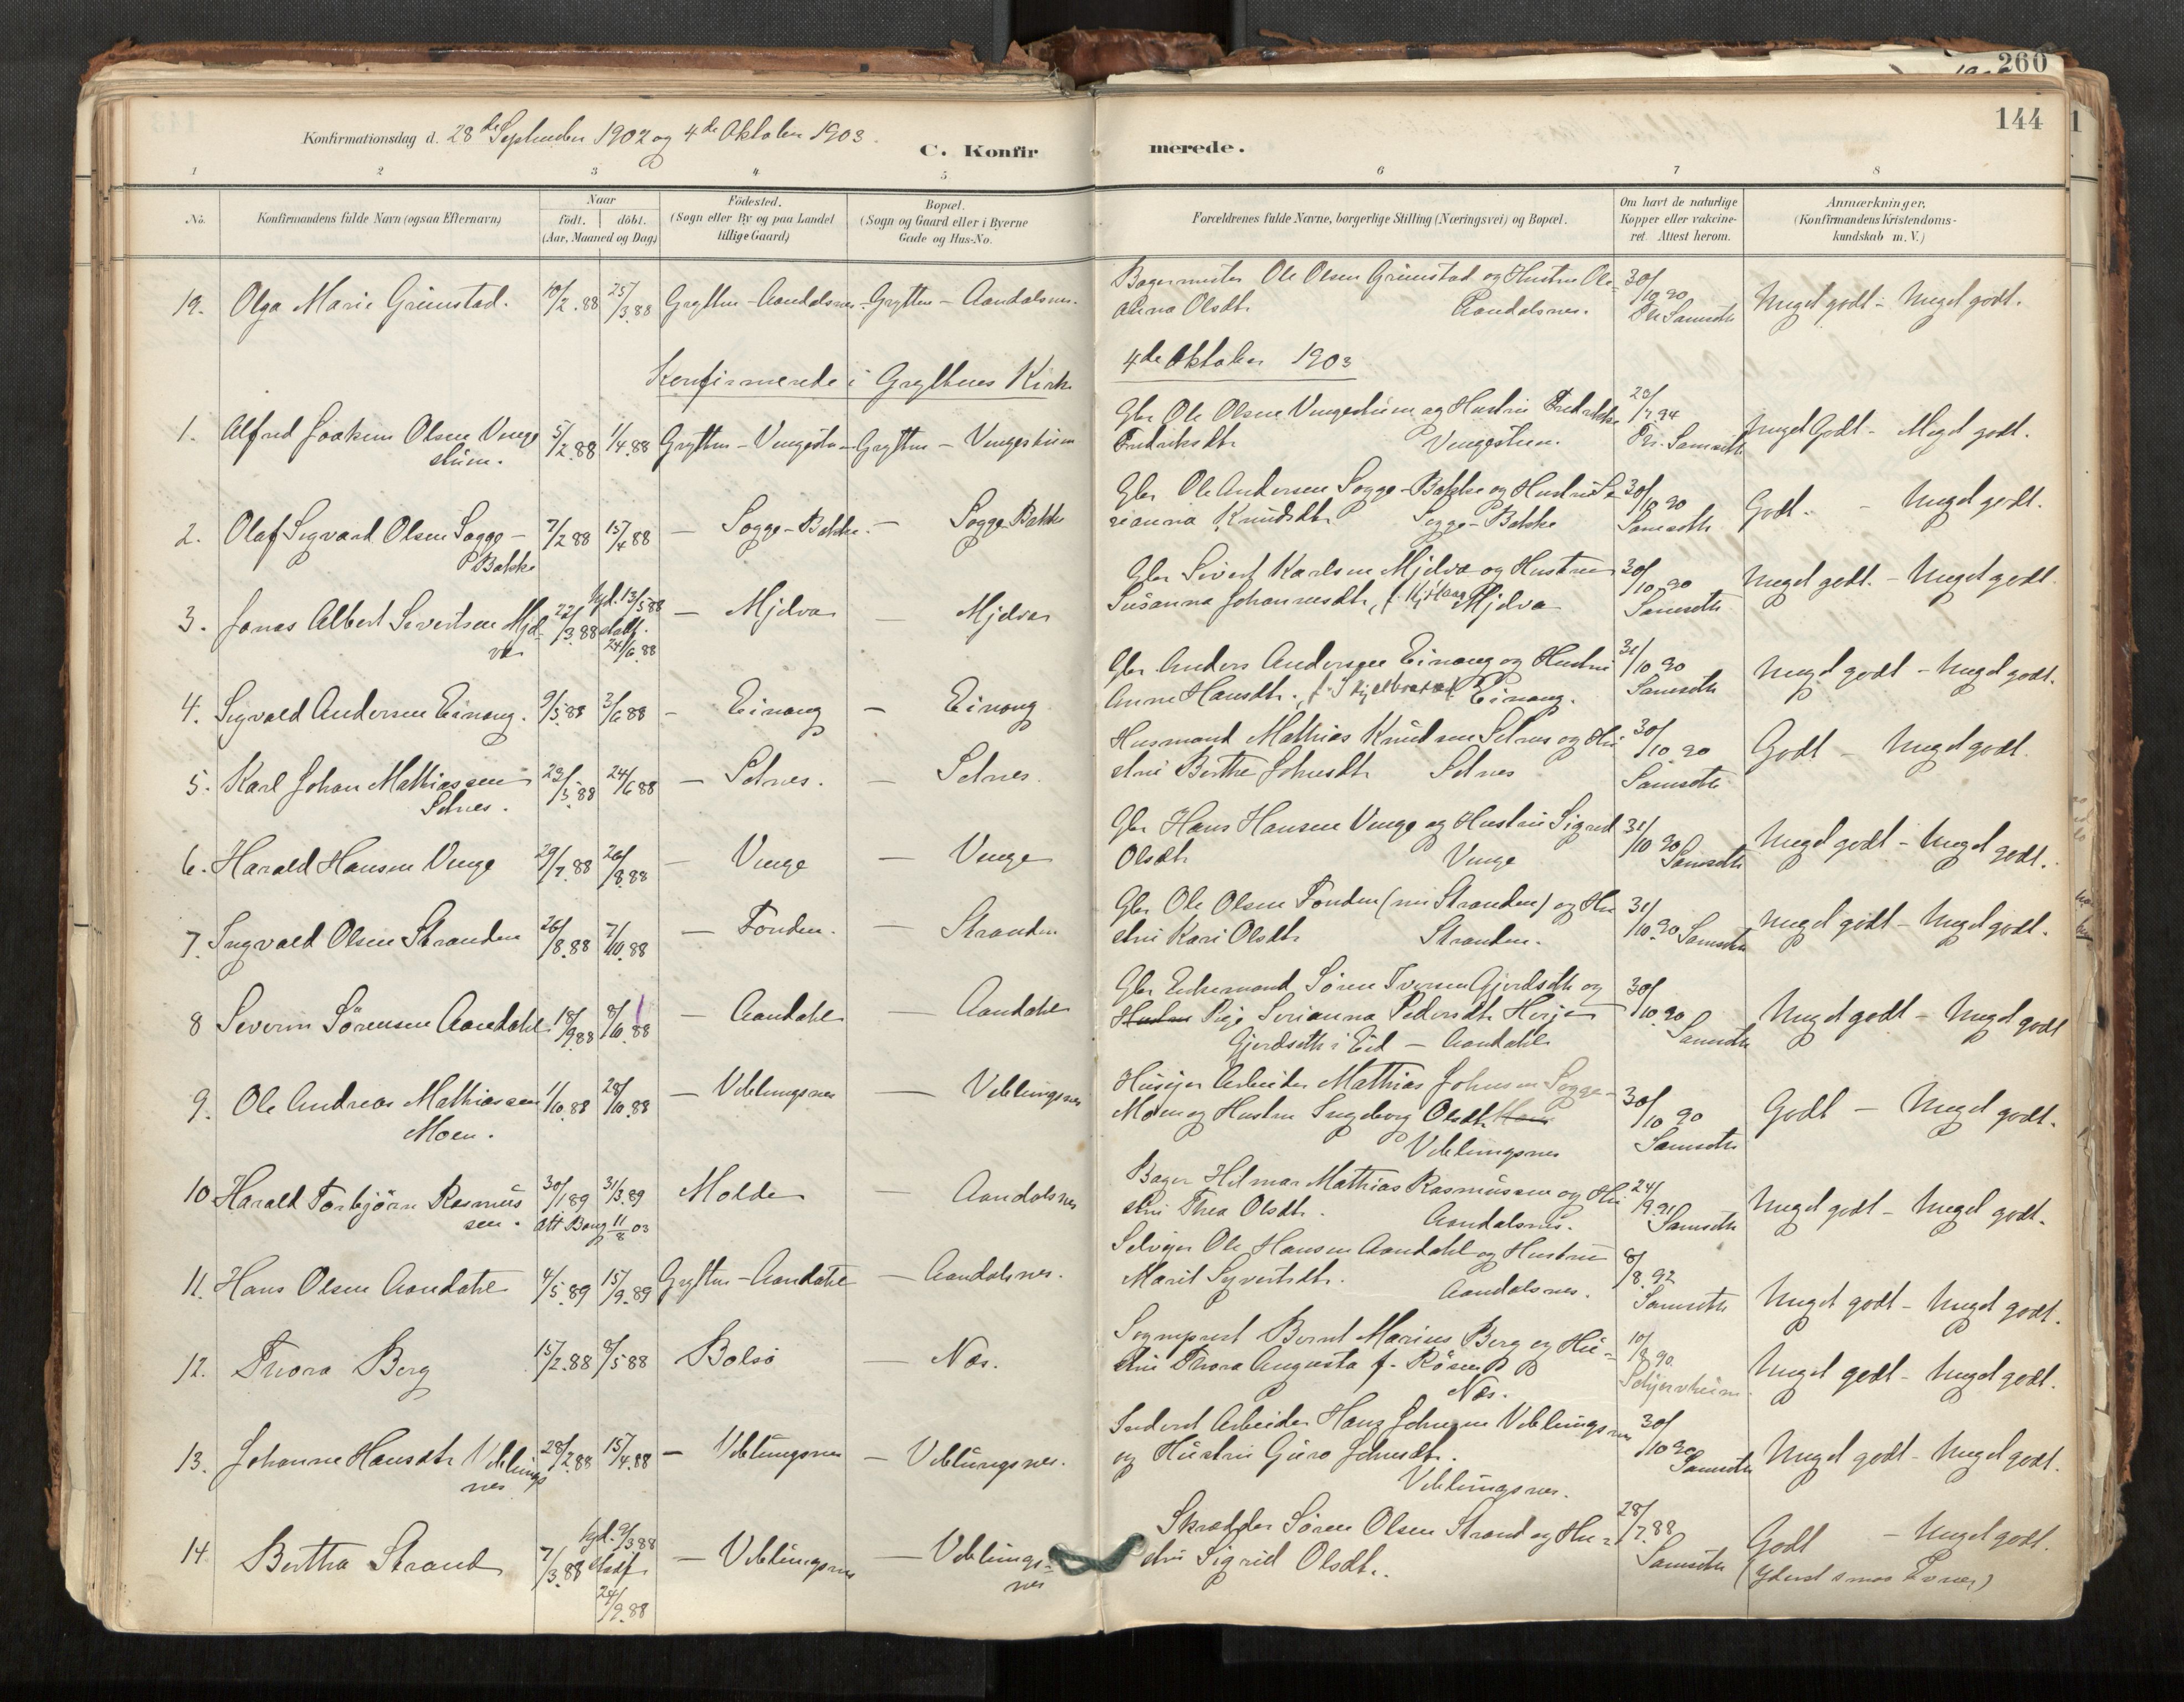 260
144
Konfirmationsdag d. 28de September 1902 og 4de Oktober 1903.
C. Konfirmerede.
1 2 3 4 5 6 7 8
No.
Konfirmandens fulde Navn (ogsaa Efternavn)
Naar
födt. döbt.
(Aar, Maaned og Dag)
Födested.
(Sogn eller By og paa Landet
tillige Gaard)
Bopæl.
(Sogn og Gaard eller i Byerne
Gade og Hus-No.
Forældrenes fulde Navne, borgerlige Stilling (Næringsvei) og Bopæl.
Om havt de naturlige
Kopper eller vakcine-
ret. Attest herom.
Anmærkninger,
(Konfirmandens Kristendoms-
kundskab m. V.)
19. Olga Marie Grimstad. 10/2.88 25/3.88 Grytten - Aandalsnes - Grytten - Aandalsnes.
Bagermester Ole Olsen Grimstad og Hustru Ole- 30/10 90 Meget godt - Meget godt.
anna Olsdt. Aandalsnes. Samseth
Konfirmerede i Gryttens Kirke 4de Oktober 1903
1. Alfred Joakim Olsen Venge 5/2.88 1/4.88 Grytten - Vengestu - Grytten - Vengestuen
stuen.
Gbr Ole Olsen Vengestuen og Hustru Fredrikke 23/7 94 Meget Godt - Meget godt.
Fredriksdt. Vengestuen. Samseth
2. Olaf Sigvard Olsen Sogge - 7/2 88 15/4 88 — Sogge-Bakke. — Sogge Bakke
Bakke
Gbr Ole Andersen Sogge-Bakke og Hustru Se 30/10 90 Godt. - Meget godt.
rianna Knudsdt. Sogge-Bakke Samseth
3. Jonas Albert Sivertsen Mjel- 22/3.88 hjd. 13/5 88 — Mjelva — Mjelva
va stadf. 24/6 88
Gbr Sivert Karlsen Mjelva og Hustru 30/10 90 Meget godt. - Meget godt
Susanna Johannesdt, Mjelva Samseth
4. Sigvald Andersen Einang. 9/5.88 3/6 88 - Einang — Einang
Gbr Anders Andersen Einang og Hustru 31/10 90 Meget godt - Meget godt.
Anne Hansdt. Einang. Samseth
5. Karl Johan Mathiassen 23/5.88 24/6 88 — Setnes. — Setnes.
Setnes.
Husmand Mathias Knudsen Setnes og Hu 30/10 90 Godt - Meget godt.
stru Berthe Johnsdt. Setnes Samseth
6. Harald Hansen Venge 29/7.88 26/8.88 — Venge — Venge
Gbr Hans Hansen Venge og Hustru Sigrid 31/10 90 Meget godt - Meget godt.
Olsdt. Venge Samseth
7. Ingvald Olsen Stranden 26/8.88 7/10.88 — Fonden. — Stranden
Gbr Ole Olsen Fonden (nu Stranden) og Hu 31/10.90 Samseth Meget godt - Meget godt.
stru Kari Olsdt. Stranden.
8 Severin Sörensen Aandahl 18/9.88 8/10.88 — Aandahl — Aandahl
Gbr Enkemand Sören Iversen Gjerdseth og 30/10 90 Meget godt - Meget godt
Hustru Pige Serianna Pedersdt. Herje Samseth
Gjerdseth i Eid - Aandahl
9. Ole Andreas Mathiassen 1/10.88 28/10.88 — Veblungsnes — Veblungsnes
Moen.
Huseier Arbeider Mathias Johnsen Sogge- 30/10 90 Godt - Meget godt.
Moen og Hustru Ingeborg Olsdt. Samseth
Veblungsnes
10 Harald Torbjörn Rasmus 30/1 89 31/3.89 Molde — Aandalsnes
sen. att Baug 11/8 03
Bager Hilmar Mathias Rasmussen og Hu 24/9.91 Meget godt - Meget godt.
stru Thea Olsdt. Aandalsnes. Samseth
11. Hans Olsen Aandahl 4/5.89 15/9.89 Grytten - Aandahl — Aandalsnes.
Selveier Ole Hansen Aandahl og Hustru 8/8.92 Meget godt - Meget godt.
Marit Syvertsdt. Aandalsnes. Samseth
12. Thora Berg 15/2.88 8/5 88 Bolsö — Nes.
Sogneprest Bernt Marius Berg og Hu- 10/8.90 Meget godt - Meget godt.
stru Thora Augusta f. Nes.
13. Johanne Hansdt. Veblungs 28/2.88 15/4.88 — Veblungsnes — Veblungsnes.
nes
Inderst Arbeider Hans Johnsen Veblungsnes 30/10 90 Meget godt - Meget godt.
og Hustru Guro Johnsdt. Samseth
Veblungsnes.
14. Bertha Strand 7/3.88 hjd. 9/3 88 — Veblungsnes — Veblungs-
stadf. 24/9.88 nes
Skrædder Sören Olsen Strand og Hu- 28/7.88 Godt - Meget godt.
stru Sigrid Olsdt. Samseth (yderst smaa Evner)